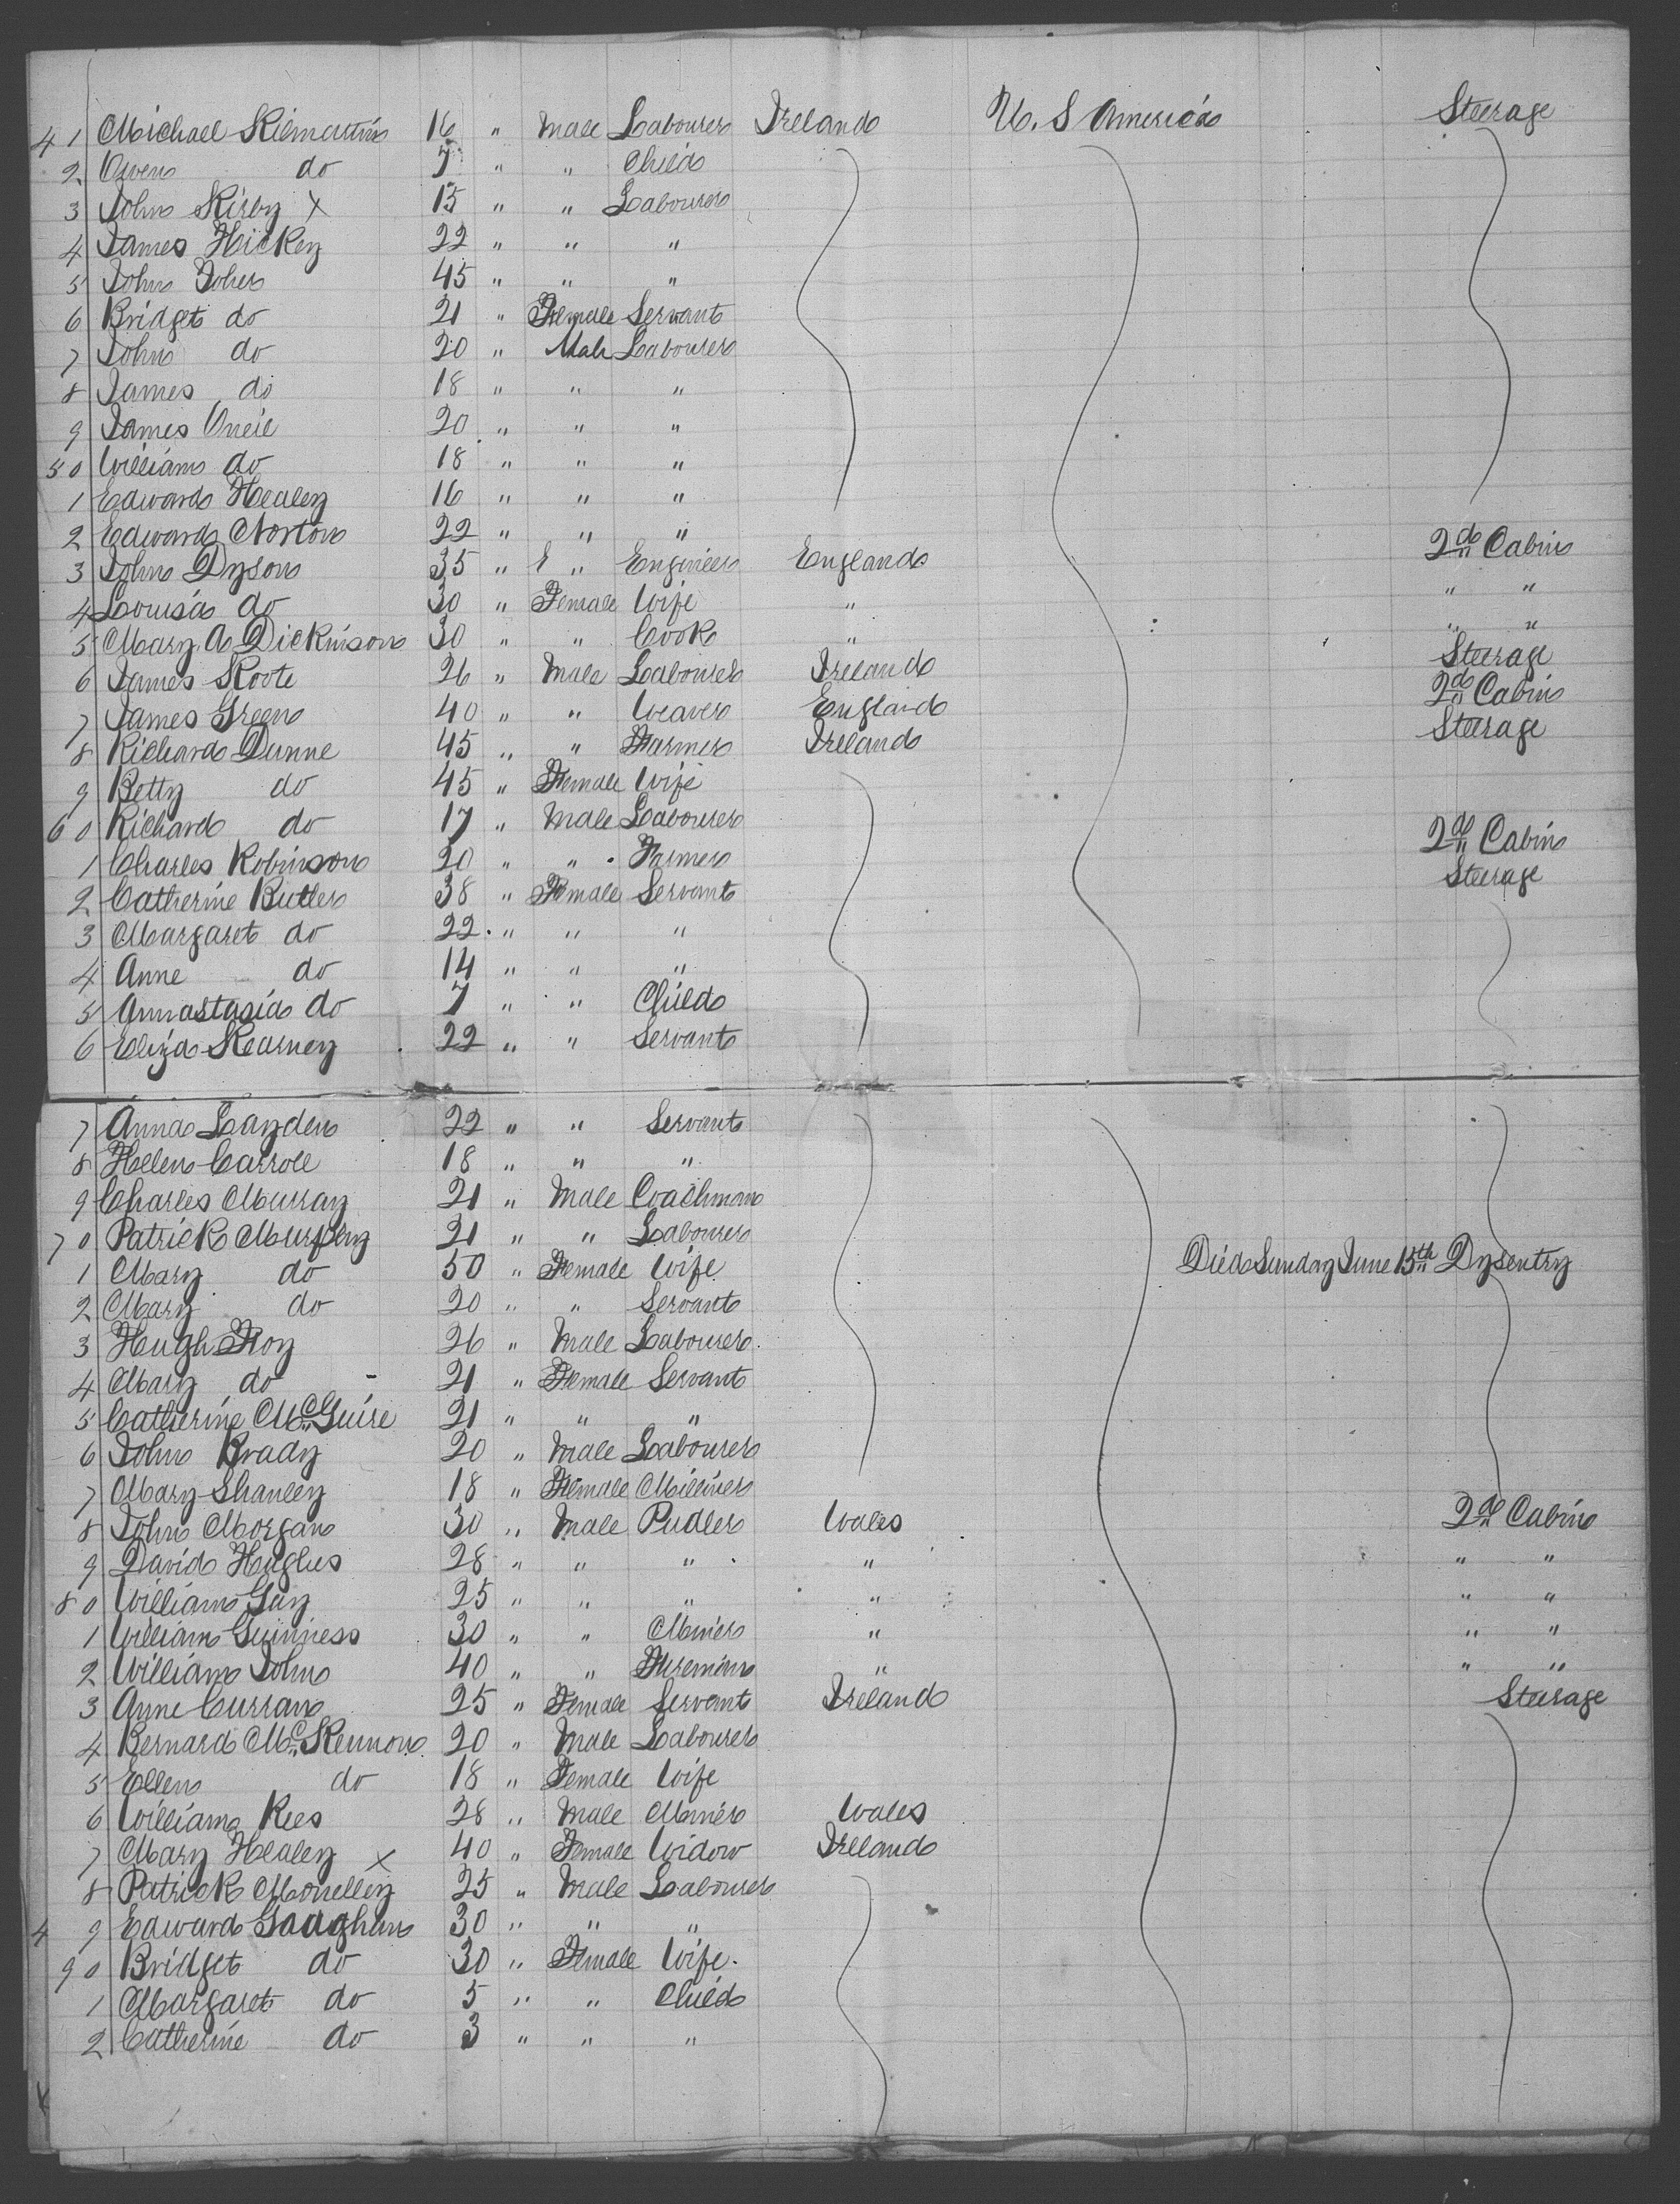 41 Michael Kilmartin 16 " Male Labourer Ireland U. S America Steerage
2 Owen do 7 " " Child
3 John Kirby X 15 " " Labourer
4 James Hickey 22 " " "
5 John Toher 45 " " "
6 Bridget do 21 " Female Servant
7 John do 20 " Male Labourer
8 James do 18 " " "
9 James Oneil 20 " " "
50 William do 18 " " "
1 Edward Healey 16 " " "
2 Edward Norton 22 " " "
3 John Dyson 35 " " Engineer England 2nd Cabin
4 Louisa do 30 " Female Wife " " "
5 Mary A Dickinson 30 " " Cook " " "
6 James Roote 26 " Male Labourer Ireland Steerage
7 James Green 40 " " Weaver England 2nd Cabin
8 Richard Dunne 45 " " Farmer Ireland Steerage
9 Betty do 45 " Female Wife
60 Richard do 17 " Male Labourer
1 Charles Robinson 20 " " Farmer 2nd Cabin
2 Catherine Butler 38 " Female Servant Steerage
3 Margaret do 22 " " "
4 Anne do 14 " " "
5 Annastasia do 7 " " Child
6 Eliza Kearney 22 " " Servant
7 Anna Layden 22 " " Servant
8 Helen Carroll 18 " " "
9 Charles Murray 21 " Male Coachman
70 Patrick Murphy 21 " " Labourer
1 Mary do 50 " Female Wife Died Sunday June 15th Dysentry
2 Mary do 20 " " Servant
3 Hugh Foy 26 " Male Labourer
4 Mary do 21 " Female Servant
5 Catherine McGuire 21 " " "
6 John Brady 20 " Male Labourer
7 Mary Shanley 18 " Female Milliner
8 John Morgan 30 " Male Pudler Wales 2nd Cabin
9 David Hughes 28 " " " " " "
80 William Gay 25 " " " " " "
1 William Guinness 30 " " Miner " " "
2 William John 40 " " Firemin " " "
3 Anne Curran 25 " Female Servant Ireland Steerage
4 Bernard McKennon 20 " Male Labourer
5 Ellen do 18 " Female Wife
6 William Rees 28 " Male Miner Wales
7 Mary Healey X 40 " Female Widow Ireland
8 Patrick Monelley 25 " Male Labourer
9 Edward Gaughan 30 " " "
90 Bridget do 30 " Female Wife.
1 Margaret do 5 " " Child
2 Catherine do 3 " " "